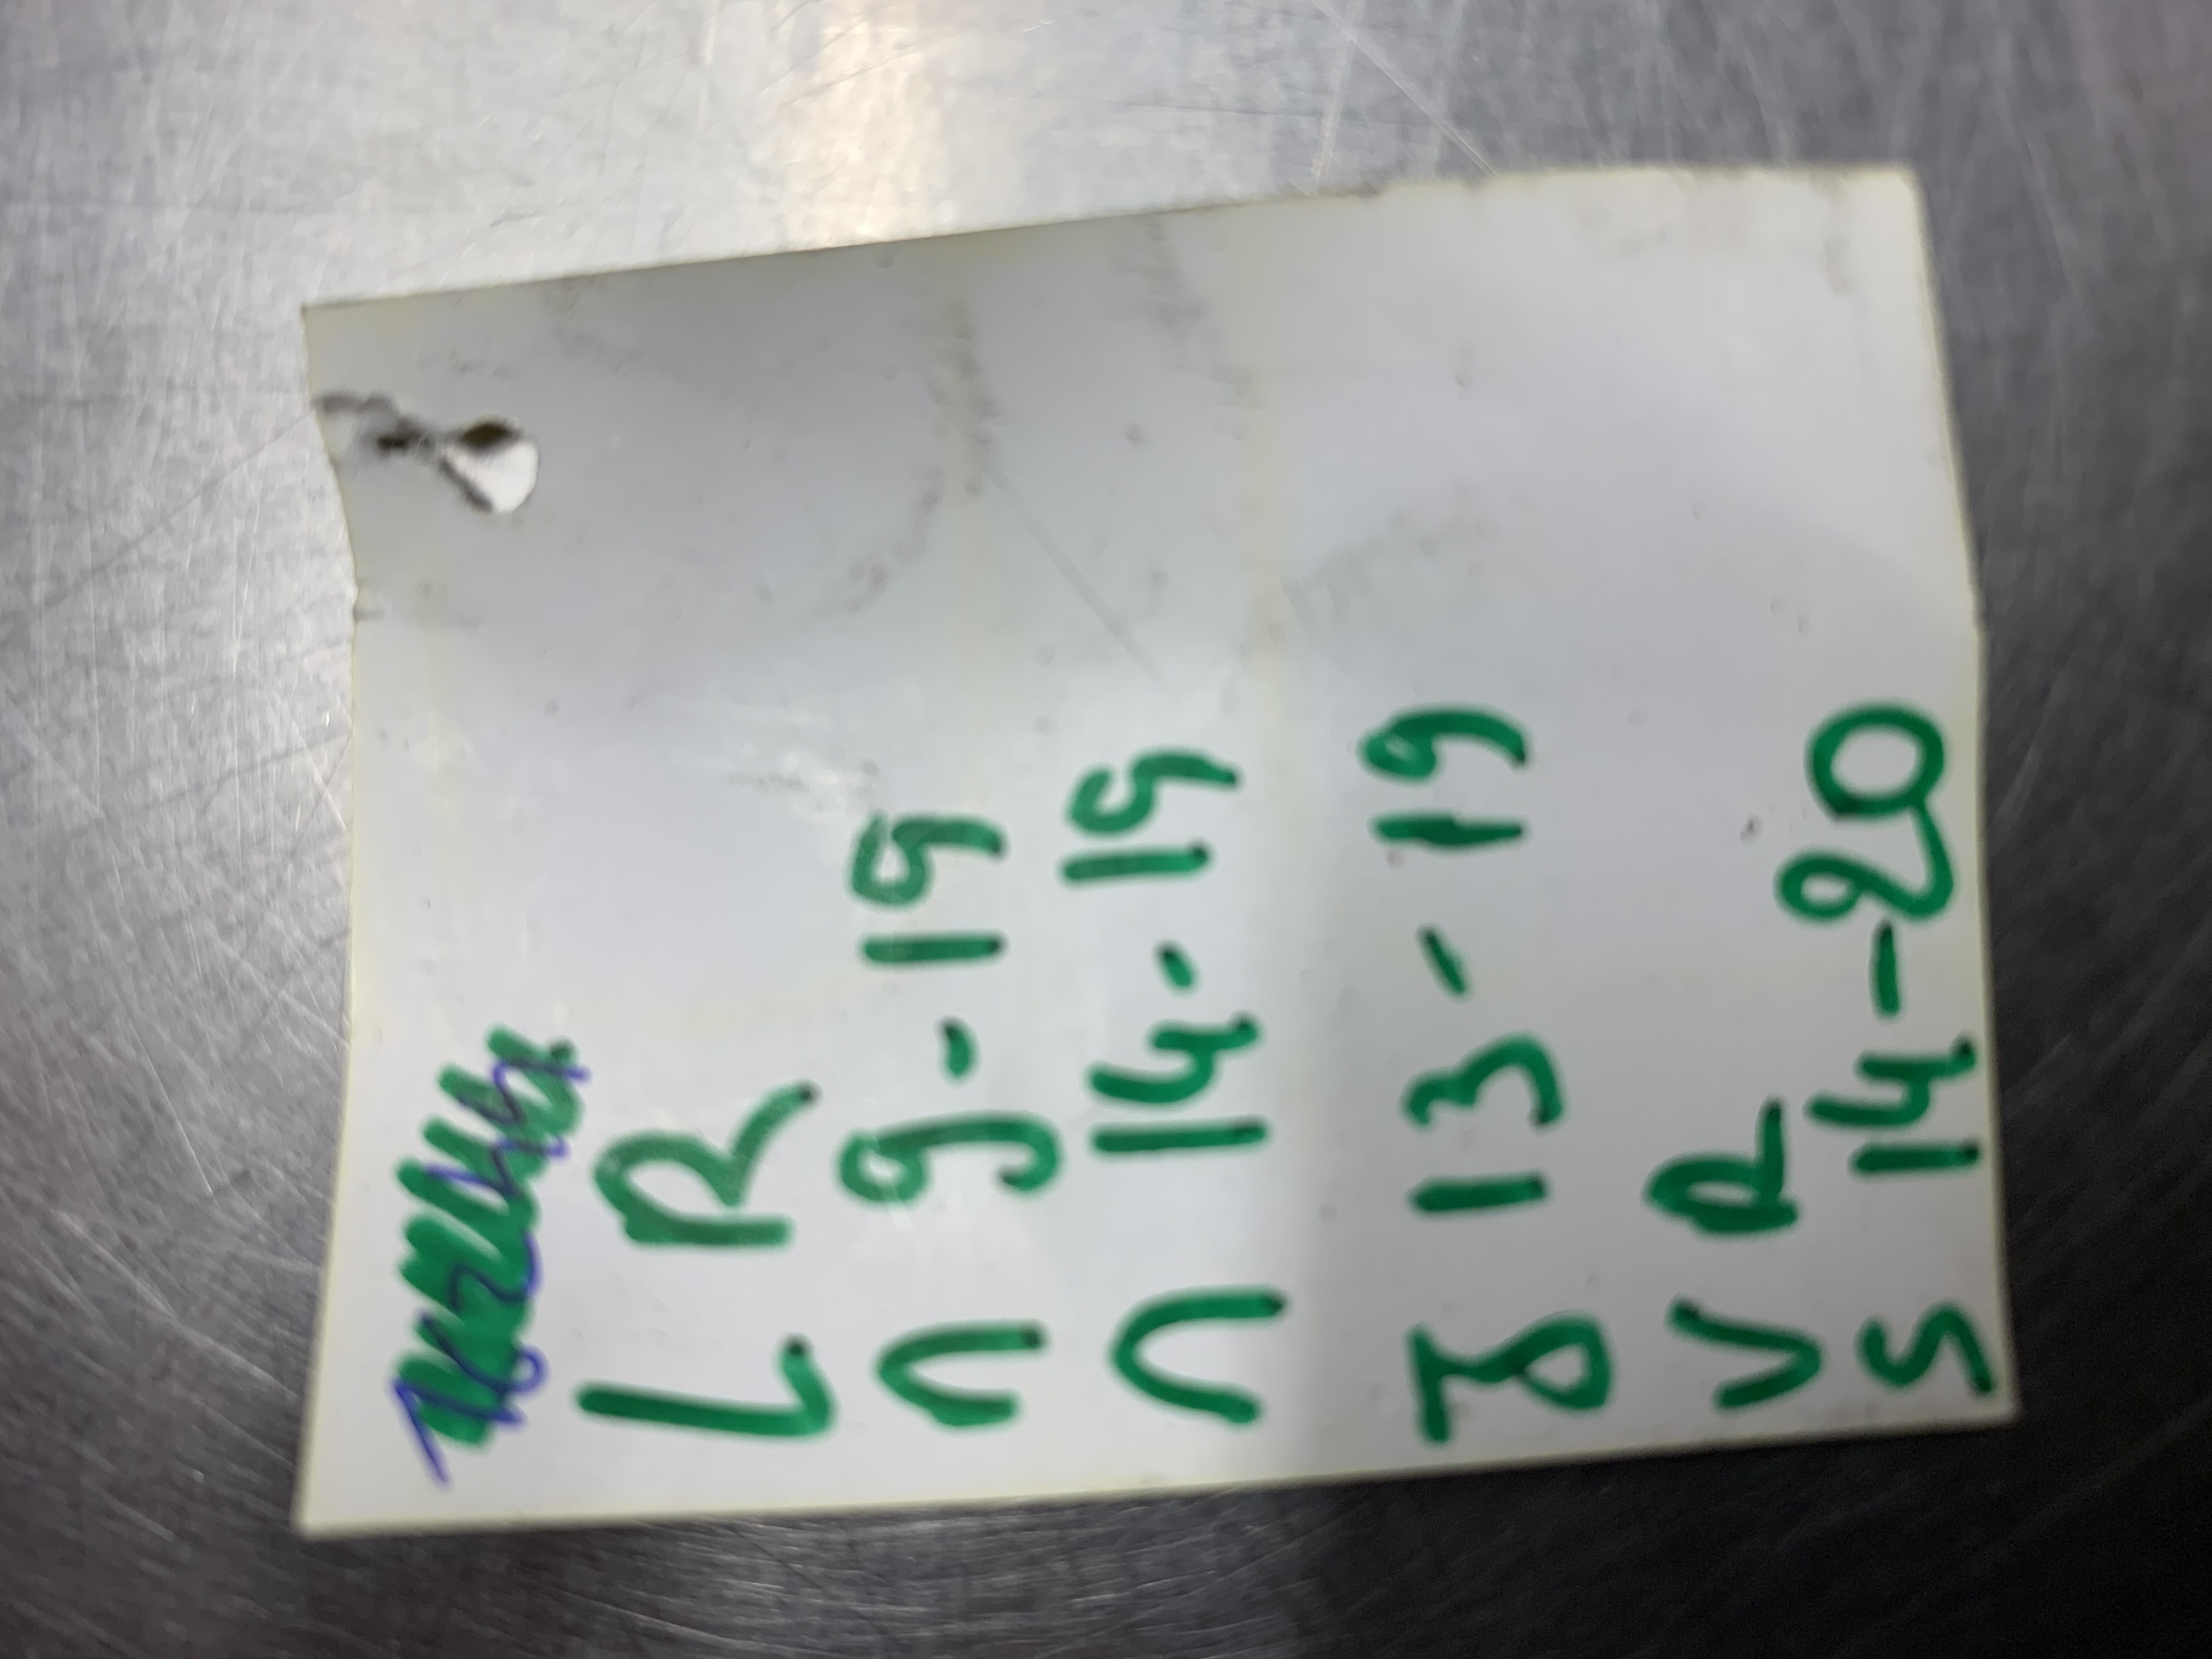 L R
n 9-19
n 14-19
8 13-19
V R
S 14-20